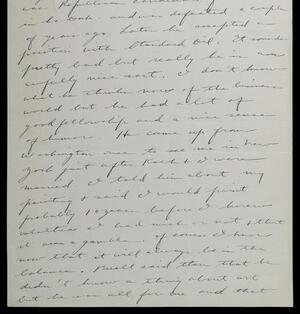 was Republican candidate
in No. Dak. and was defeated a couple
of years ago. Later he accepted a
position with Standard Oil. It sounds
pretty bad but really he is an
awfully nice sort. I don't know
what he thinks now of the business
world but he had a lot of
good fellowship and a nice sense
of humor. He came up from
Washington once to see me in New
York just after Koch & I were
married. I told him about my
painting & said I would paint
probably 10 years before I knew
whether I had much or not & that
it was a gamble. Of course I know
now that it will always be in the
balance. Buell said then that he
didn't know a thing about art
but he was all for me and that